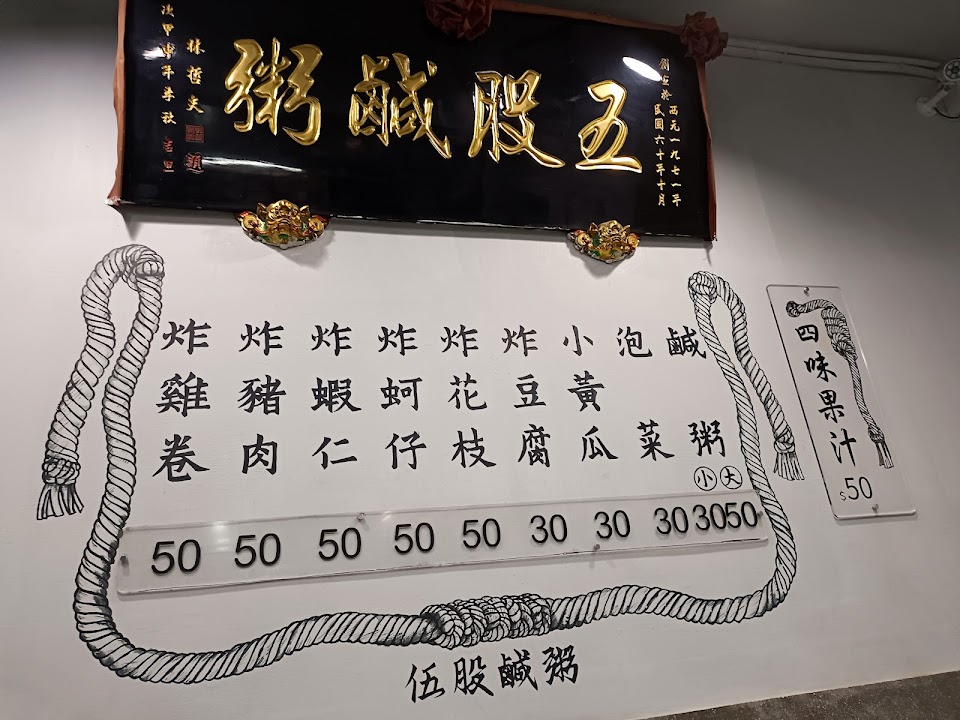 五股鹹粥
西元一九七一年
民國六十年十月
林哲夫
季秋 吉旦
鹹粥 小 大 30 50
泡菜 30
小黃瓜 30
炸豆腐 30
炸花枝 50
炸蚵仔 50
炸蝦仁 50
炸豬肉 50
炸雞卷 50
四味果汁
$50
伍股鹹粥